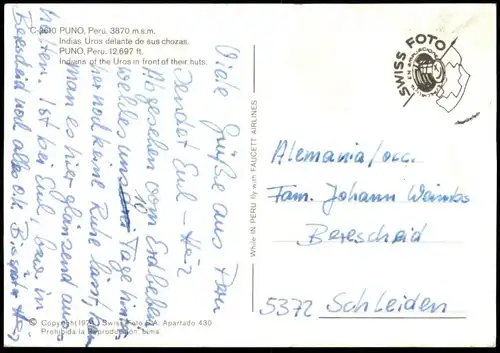 C-3010 PUNO, Peru. 3870 m.s.m.
Indias Uros delante de sus chozas.
PUNO, Peru. 12.697 ft.
Indians of the Uros in front of their huts.
Viele Grüße aus Peru
sendet Eul - Hz
Abgesehen vom Erdbeben
welches uns 10 Tage hinter-
her noch keine Ruhe lässt, kann
man es hier glänzend aus-
halten. Ist bei Eul, bzw in
Berescheid noch alles Ok. Bis später Hz
© Copyright Swiss Foto S.A. Apartado 430
Prohibida la Reproducción. Lima
While IN PERU fly with FAUCETT AIRLINES
SWISS FOTO
Alemania/occ.
Fam. Johann Weimbs
Berescheid
5372 Schleiden